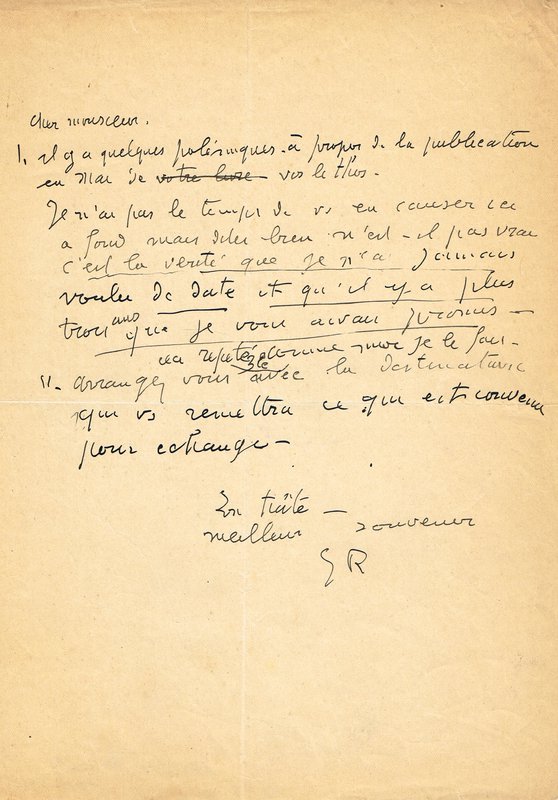 cher monsieur.
1. il y a quelques polémiques à propos de la publication
en Mai de votre livre vos lettres.
Je n'ai pas le temps de vs en causer ici
a fond mais dites bien n'est-il pas vrai
c'est la vérité que je n'ai jamais
voulu de date et qu'il y a plus
trois ans que je vous avais promis —
repetez comme moi je le fais -
11 - arrangez vous avec la destinataire
qui vs remettra ce qui est convenu
pour echange —
En hâte —
meilleur souvenir
G R